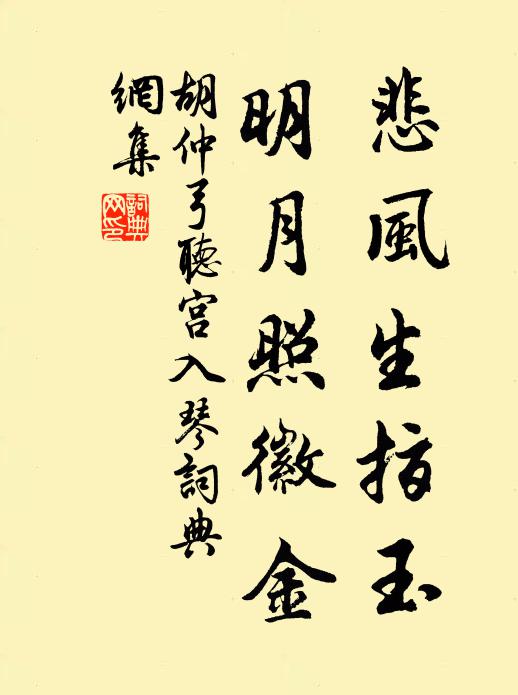 悲風生指玉
明月照徽金
胡仲弓聽宫入琴詞典
網集
詞典網印